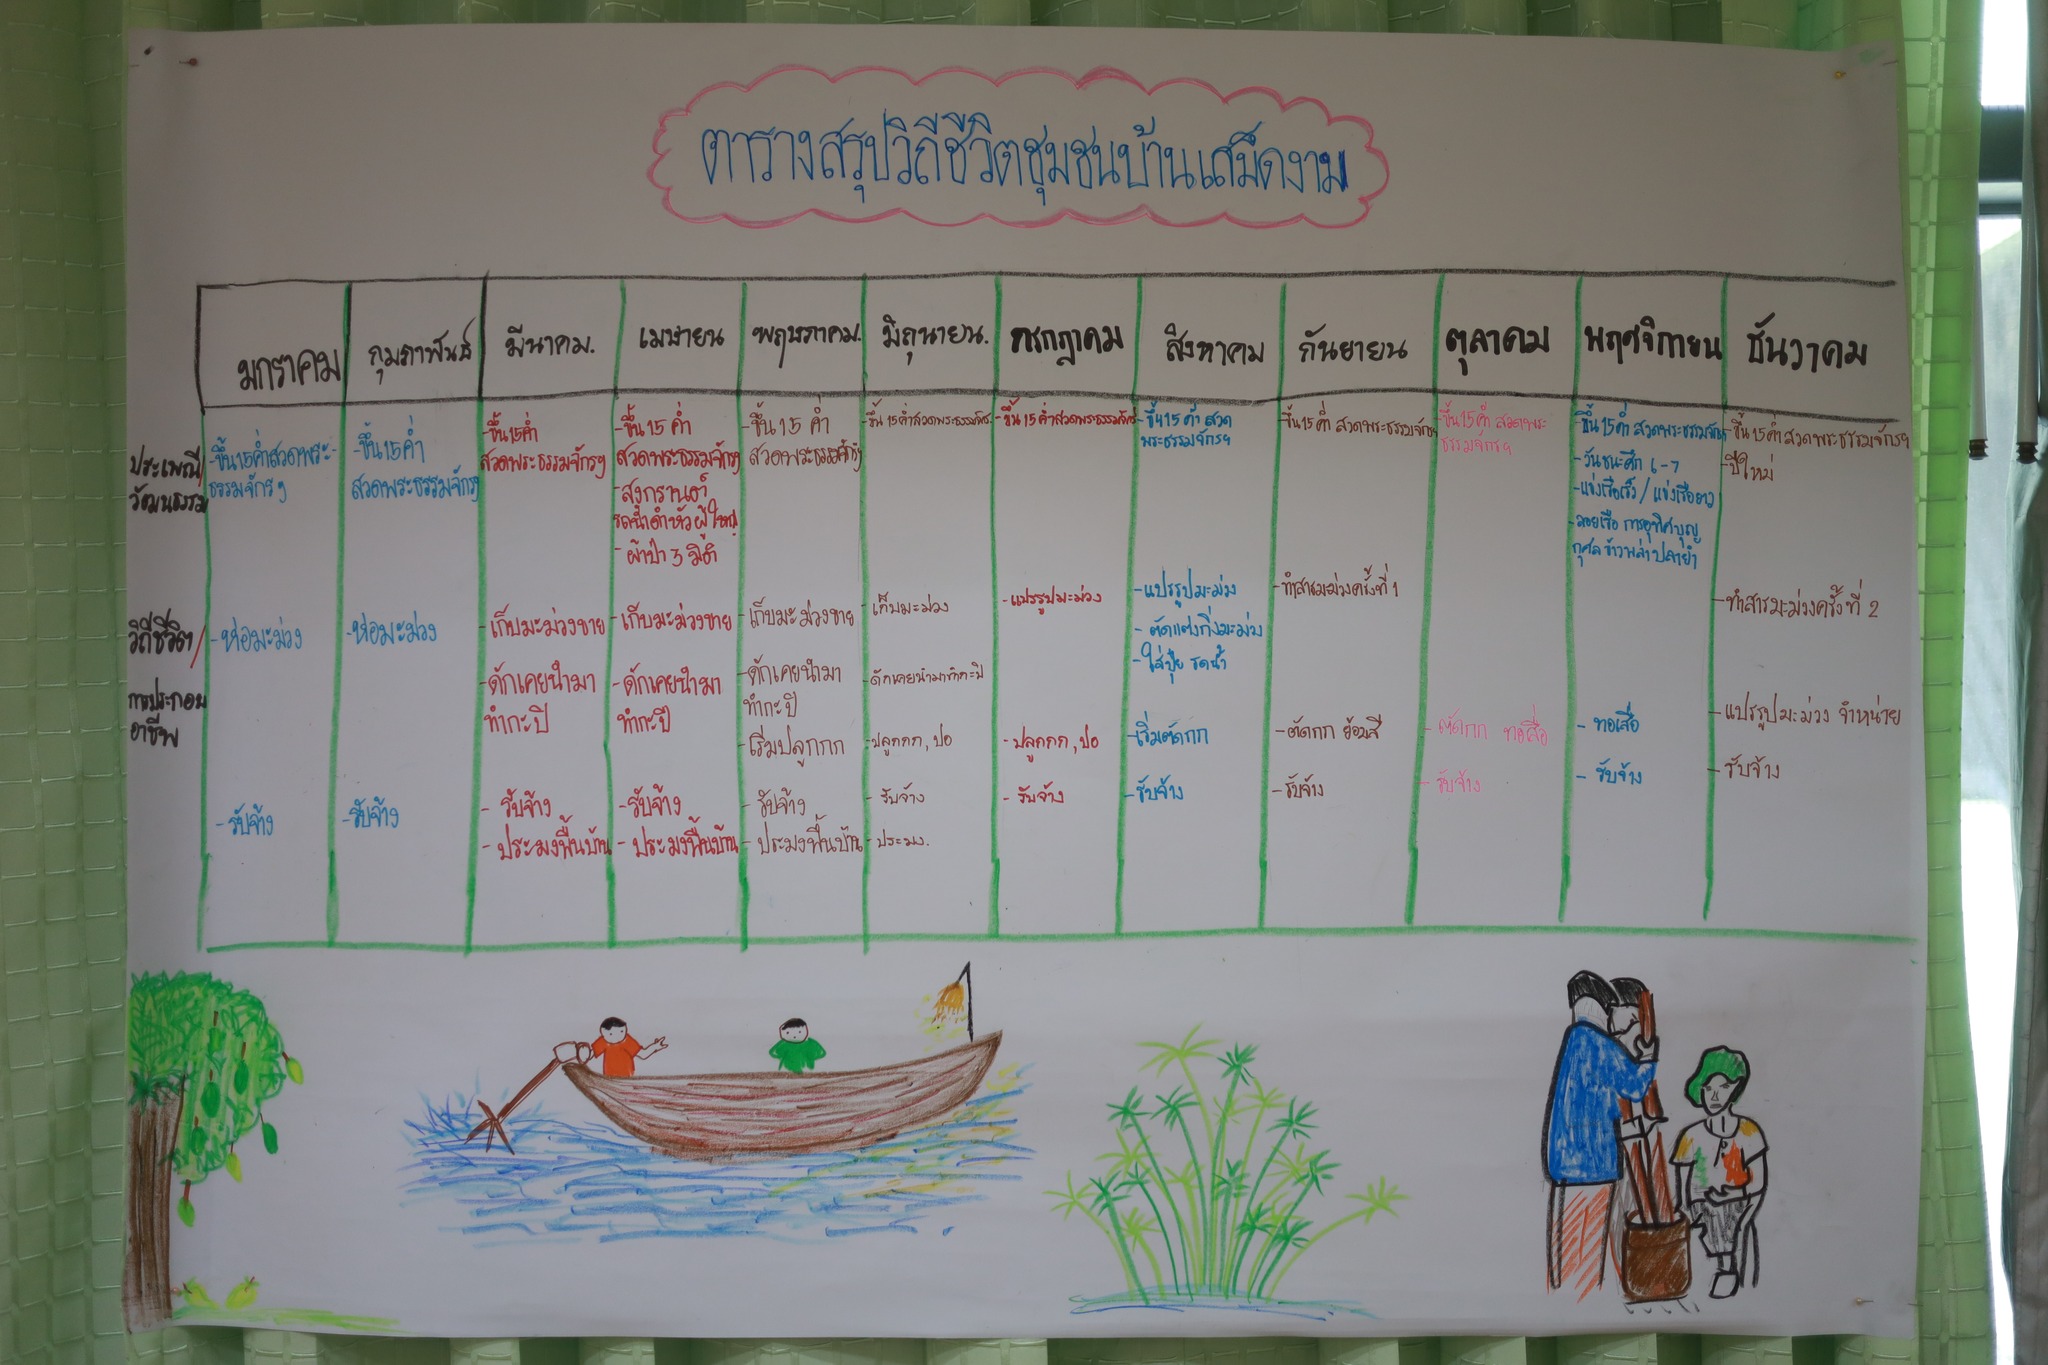 ตารางสรุปวิถีชีวิตชุมชนบ้านเสม็ดงาม
มกราคม
กุมภาพันธ์
มีนาคม.
เมษายน
พฤษภาคม.
มิถุนายน.
กรกฎาคม
สิงหาคม
กันยายน
ตุลาคม
พฤศจิกายน
ธันวาคม
ประเพณี/
วัฒนธรรม
-ขึ้น15ค่ำสวดพระ-
ธรรมจักรฯ
-ขึ้น15ค่ำ
สวดพระธรรมจักรฯ
-ขึ้น15ค่ำ
สวดพระธรรมจักรฯ
-ขึ้น15 ค่ำ
สวดพระธรรมจักรฯ
-สงกรานต์
รดน้ำดำหัวผู้ใหญ่
- ผ้าป่า 3 มิติ
-ขึ้น15 ค่ำ
สวดพระธรรมจักรฯ
-ขึ้น15ค่ำสวดพระธรรมจักร
-ขึ้น15ค่ำสวดพระธรรมจักร
-ขึ้น15ค่ำ สวด
พระธรรมจักรฯ
-ขึ้น15ค่ำ สวดพระธรรมจักรฯ
-ขึ้น15ค่ำ สวดพระ
ธรรมจักรฯ
-ขึ้น15ค่ำ สวดพระธรรมจักรฯ
-วันชนะศึก 6-7
-แข่งเรือเร็ว / แข่งเรือยาว
-ลอยเรือ การอุทิศบุญ
กุศล ข้าวพล่าปลายำ
-ขึ้น15ค่ำสวดพระธรรมจักรฯ
-ปีใหม่
วิถีชีวิต/
การประกอบ
อาชีพ
-ห่อมะม่วง
-รับจ้าง
-ห่อมะม่วง
-รับจ้าง
-เก็บมะม่วงขาย
-ดักเคยนำมา
ทำกะปิ
- รับจ้าง
- ประมงพื้นบ้าน
-เก็บมะม่วงขาย
-ดักเคยนำมา
ทำกะปิ
-รับจ้าง
- ประมงพื้นบ้าน
-เก็บมะม่วงขาย
-ดักเคยนำมา
ทำกะปิ
-เริ่มปลูกกก
- รับจ้าง
- ประมงพื้นบ้าน
-เก็บมะม่วง
-ดักเคยนำมาทำกะปิ
-ปลูกกก,ปอ
- รับจ้าง
-ประมง.
-แปรรูปมะม่วง
-ปลูกกก,ปอ
- รับจ้าง
-แปรรูปมะม่วง
- ตัดแต่งกิ่งมะม่วง
-ใส่ปุ๋ย รดน้ำ
-เริ่มตัดกก
-รับจ้าง
-ทำสารมะม่วงครั้งที่ 1
-ตัดกก ย้อมสี
- รับจ้าง
-ตัดกก ทอเสื่อ
- รับจ้าง
- ทอเสื่อ
- รับจ้าง
-ทำสารมะม่วงครั้งที่ 2
-แปรรูปมะม่วง จำหน่าย
- รับจ้าง